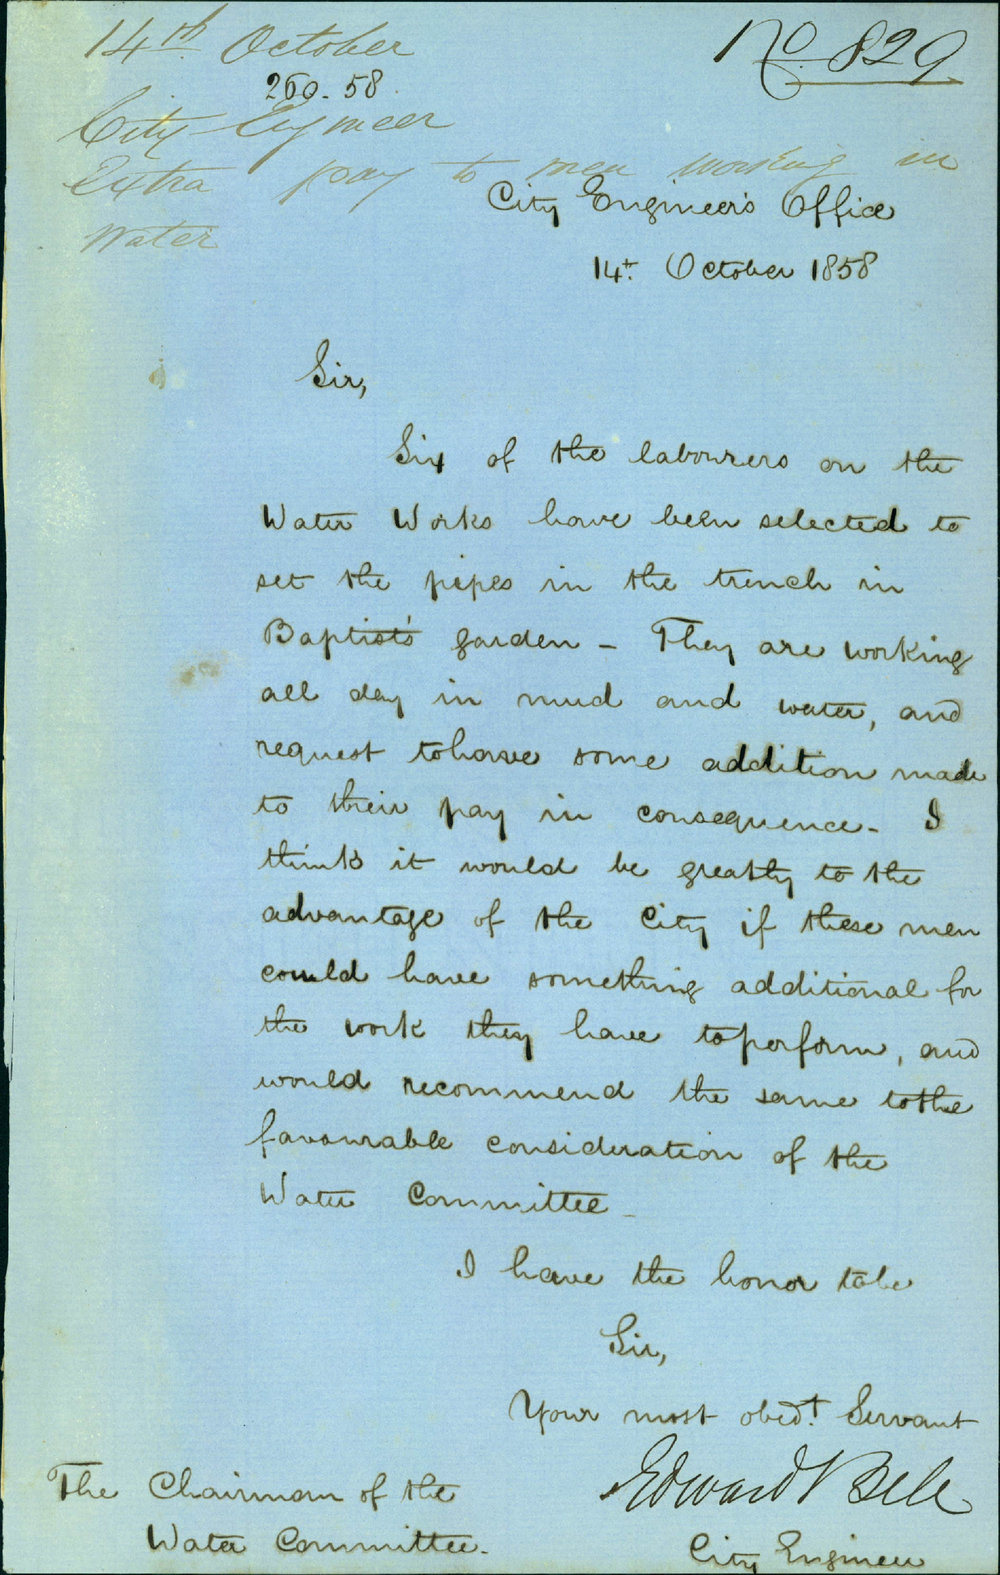 14th October
No. 829
260. 58.
City Engineer
Extra pay to men working in
Water
City Engineer's Office
14th. October 1858
Sir,
Six of the labourers on the
Water Works have been selected to
set the pipes in the trench in
Baptist's garden - They are working
all day in mud and water, and
request to have some addition made
to their pay in consequence - I
think it would be greatly to the
advantage of the City if these men
could have something additional for
the work they have to perform, and
would recommend the same to the
favourable consideration of the
Water Committee -
I have the honor to be
Sir,
Your most obedt. Servant
Edward Bell
City Engineer
The Chairman of the
Water Committee -